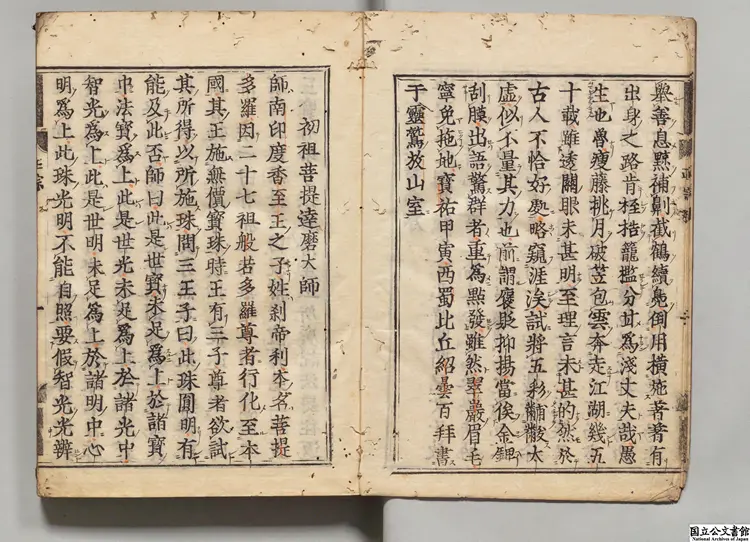 舉善息黥補劓截鶴續鳧倒用橫施著著有
出身之路肯桎梏籠檻分甘爲淺丈夫哉愚
生也魯瘦藤挑月破笠包雲奔走江湖幾五
十載雖透關眼未甚明至理言未甚的然於
古人不恰好處略窺涯涘試將五彩黼黻太
虛似不量其力也前謂褒貶抑揚當俟金鎞
刮膜出語驚群者重爲點發雖然翠巖眉毛
寧免拖地寶祐甲寅西蜀比丘紹曇百拜書
于靈鷲故山室
初祖菩提達磨大師
師南印度香至王之子姓刹帝利本名菩提
多羅因二十七祖般若多羅尊者行化至本
國其王施無價寶珠時王有三子尊者欲試
其所得以所施珠問三王子曰此珠圓明有
能及此否師曰此是世寶未足爲上於諸寶
中法寶爲上此是世光未足爲上於諸光中
智光爲上此是世明未足爲上於諸明中心
明爲上此珠光明不能自照要假智光光辨
国立公文書館
National Archives of Japan